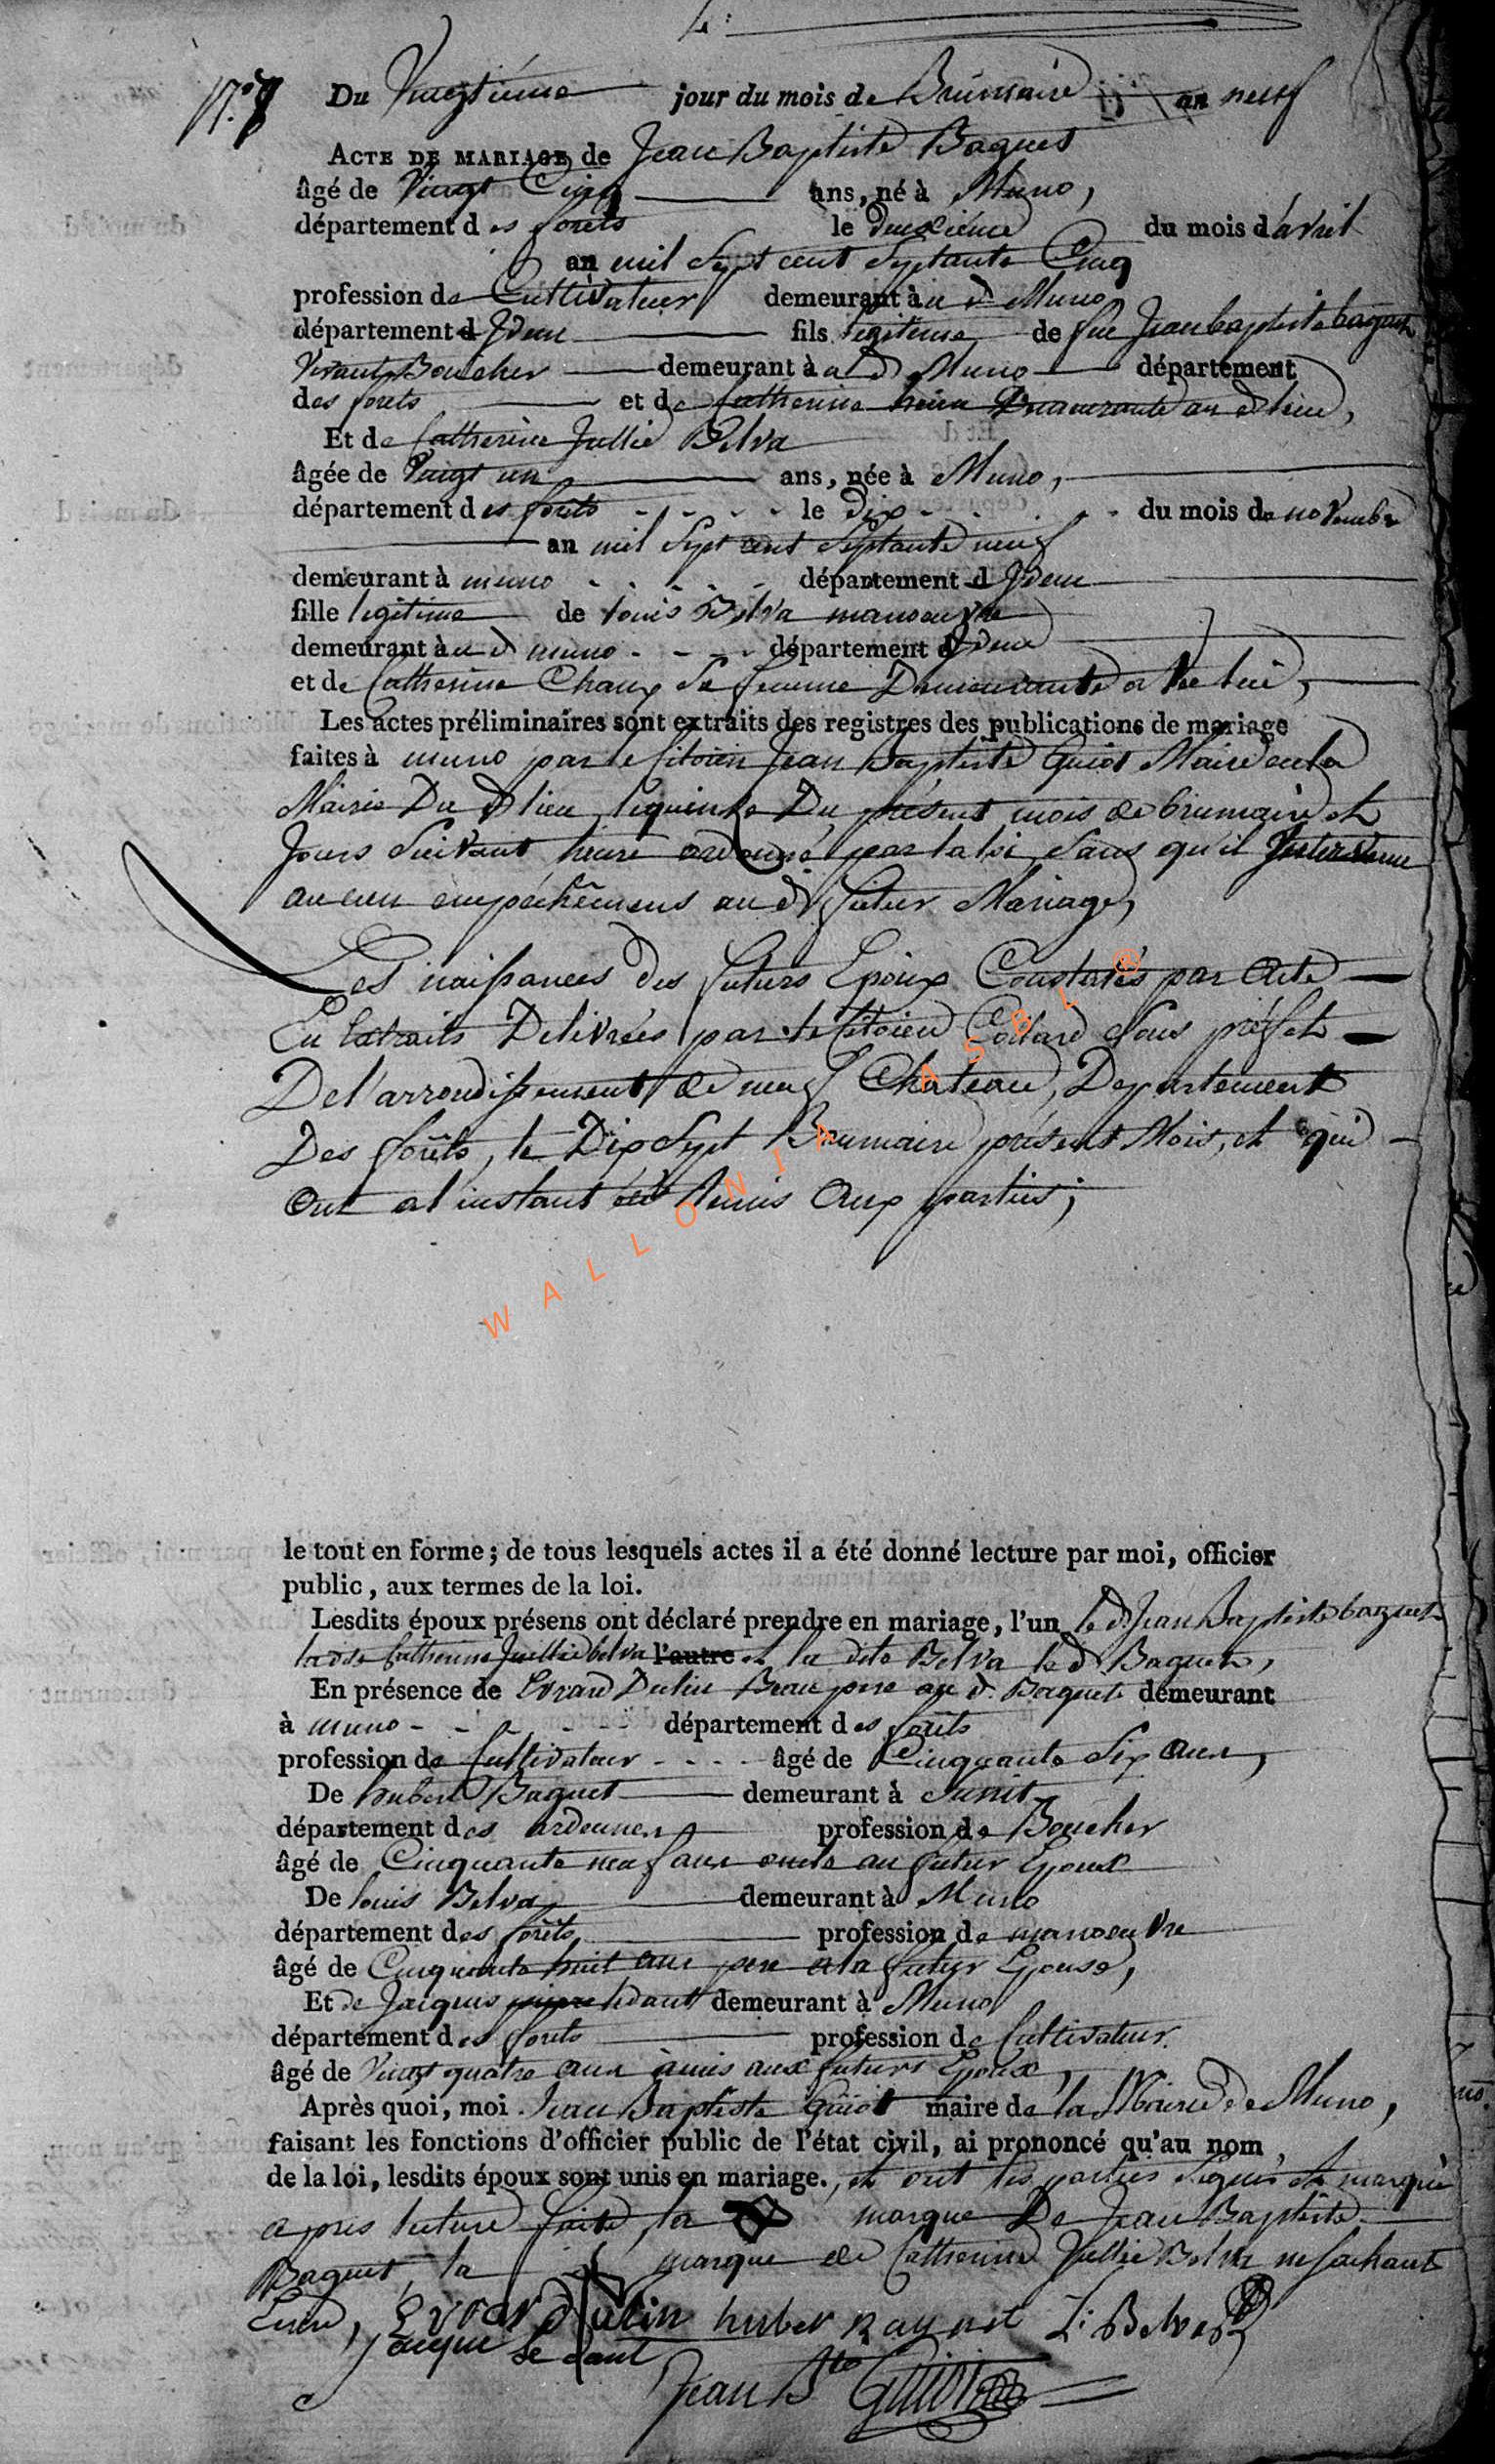 N.° 8 Du Vingtième jour du mois de Brumaire an neuf
ACTE DE MARIAGE de Jean Baptiste Baquet
âgé de Vingt Cinq ans, né à Muno,
département des forêts le deuxième du mois d'avril
an mil Sept cent Septante Cinq
profession de Cultivateur demeurant au d Muno
département d Idem fils legitime de feu Jean baptiste baquet
Vivant Boucher demeurant à a d Muno département
des forêts et de Catherine demeurante au d lieu,
Et de Catherine Jullie Belva
âgée de Vingt un ans, née à Muno,
département des forêts le dix du mois de novembre
an mil Sept cent Septante neuf
demeurant à muno département d Idem
fille legitime de Louis Belva manoeuvre
demeurant au d muno département d Idem
et de Catherine Chaux Sa femme Demeurante a lieu,
Les actes préliminaires sont extraits des registres des publications de mariage
faites à muno par le Citoien Jean Baptiste Guiot Maire en la
Mairie Du d lieu, le quinze Du présent mois de brumaire et
Jours Suivant heure ordonné par la loi, Sans qu'il
aucun empechêmens au d futur Mariage,
Les naissances des futurs Epoux Constatés par Acte
En Extraits Delivrées par le Citoien Collard Sous préfet
De l'arrondissement de neuf Chateau, Departement
Des forêts, le Dix Sept Brumaire présent Mois, et qui
Ont a l'instant été Remis Aux parties;
WALLONIA ASBL ®
le tout en forme; de tous lesquels actes il a été donné lecture par moi, officier
public, aux termes de la loi.
Lesdits époux présens ont déclaré prendre en mariage, l'un le d. Jean Baptiste baquet
la dite Catherine Jullie belva l'autre et la dite Belva le d Baquet,
En présence de Evrard Dulin Beau pere au d. Baquet demeurant
à muno département des forêts
profession de Cultivateur âgé de Cinquante Six ans,
De hubert Baquet demeurant à
département des ardennes profession de Boucher
âgé de Cinquante neuf ans oncle au futur Epoux
De louis Belva demeurant à Muno
département des forêts profession de manoeuvre
âgé de Cinquante huit ans pere a la futur Epouse,
Et de Jacques demeurant à Muno
département des forêts profession de Cultivateur
âgé de Vingt quatre ans àmis aux futurs Epoux,
Après quoi, moi Jean Baptiste Guiot maire de la Mairie de Muno,
faisant les fonctions d'officier public de l'état civil, ai prononcé qu'au nom
de la loi, lesdits époux sont unis en mariage, et ont les parties Signés et marqué
apres lecture faite, la marque De Jean Baptiste
Baquet, la marque de Catherine Jullie Belva ne sachant
Ecrire, Evrard dulin huber baquet L: Belva
Jacque
Jean Bte Guiot